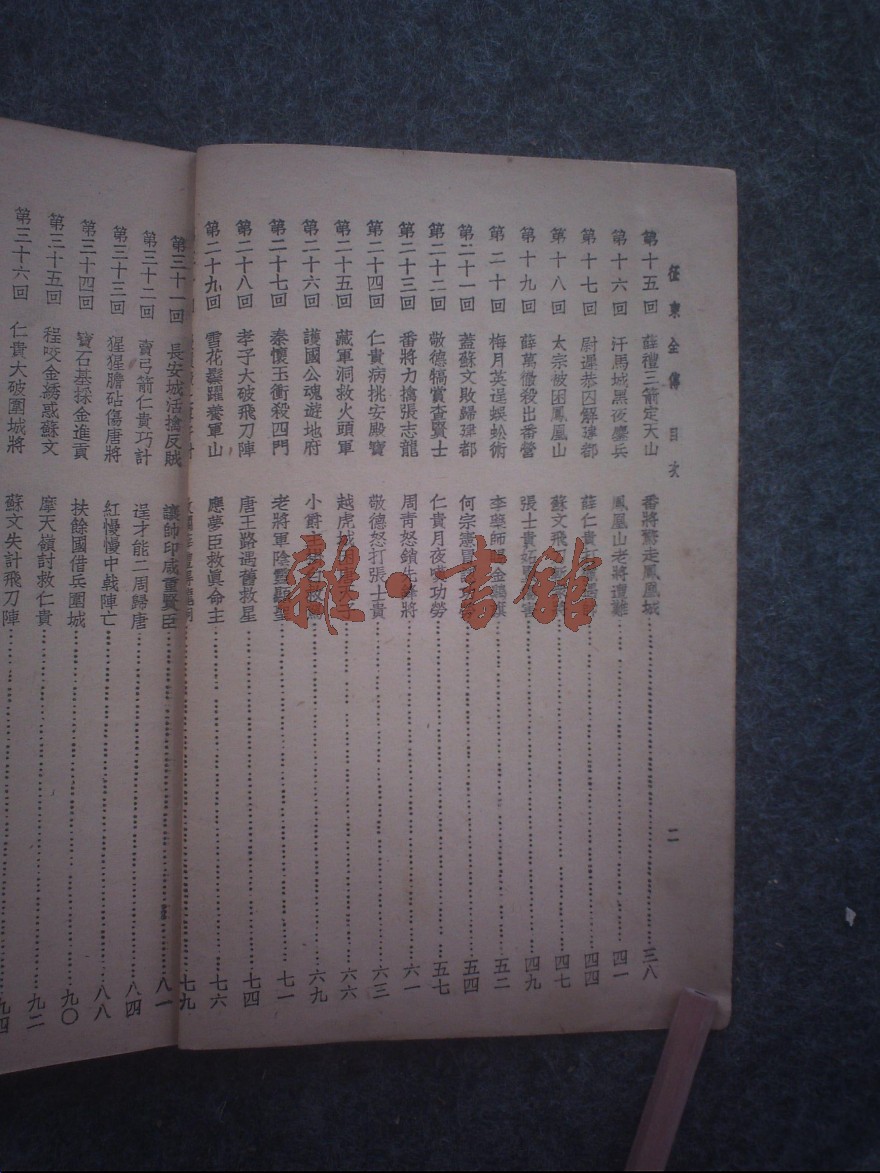 征東全傳　目次　二
第十五回　薛禮三箭定天山　番將驚走鳳凰城　三八
第十六回　汗馬城黑夜鏖兵　鳳凰山老將遭難　四一
第十七回　尉遲恭囚解建都　薛仁貴　四四
第十八回　太宗被困鳳凰山　蘇文飛　四七
第十九回　薛萬徹殺出番營　張士貴　害　四九
第二十回　梅月英逞蜈蚣術　李藥師　金　旗　五二
第二十一回　蓋蘇文敗歸建都　何宗憲冒　五四
第二十二回　敬德犒賞查賢士　仁貴月夜　功勞　五七
第二十三回　番將力擒張志龍　周靑怒鎖先鋒將　六一
第二十四回　仁貴病挑安殿寶　敬德怒打張士貴　六三
第二十五回　藏軍洞救火頭軍　越虎城　六六
第二十六回　護國公魂遊地府　小爵主　六九
第二十七回　秦懷玉衝殺四門　老將軍陰靈顯聖　七一
第二十八回　孝子大破飛刀陣　唐王路遇舊救星　七四
第二十九回　雪花鬃躍養軍山　應夢臣救眞命主　七六
七九
第三十一回　長安城活擒反賊　讓帥印威重賢臣　八一
第三十二回　賣弓箭仁貴巧計　逞才能二周歸唐　八四
第三十三回　猩猩膽砧傷唐將　紅慢慢中戟陣亡　八八
第三十四回　寶石基採金進貢　扶餘國借兵圍城　九〇
第三十五回　程咬金綉惑蘇文　摩天嶺討救仁貴　九二
第三十六回　仁貴大破圍城將　蘇文失計飛刀陣　九四
雜·書館